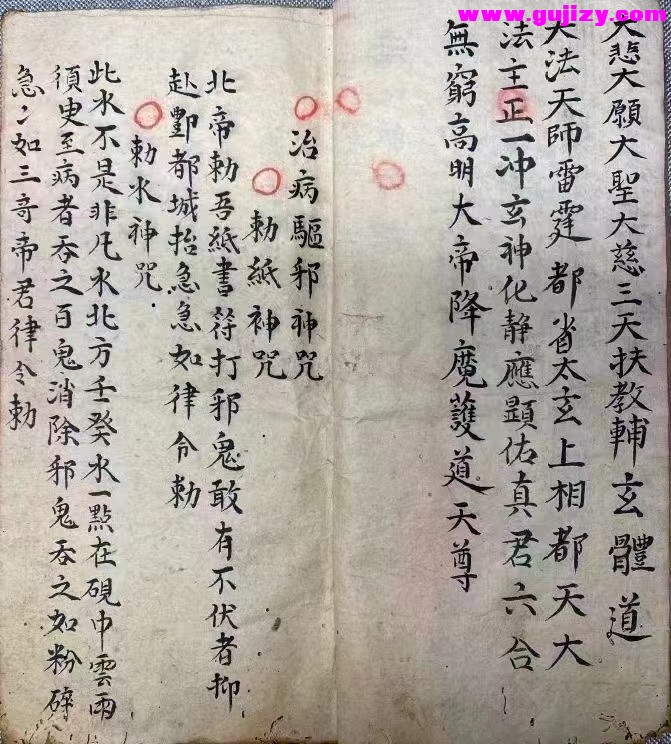 www.gujizy.com
大悲大願大聖大慈三天扶教輔玄體道
大法天師雷霆都省太玄上相都天大
法主正一冲玄神化静應顯佑真君六合
無窮高明大帝降魔護道天尊
治病驅邪神咒
勅紙神咒
北帝勅吾紙書符打邪鬼敢有不伏者抑
赴酆都城抬急急如律令勅
勅水神咒
此水不是非凡水北方壬癸水一點在硯中雲雨
須臾至病者吞之百鬼消除邪鬼吞之如粉碎
急〻如三奇帝君律令勅